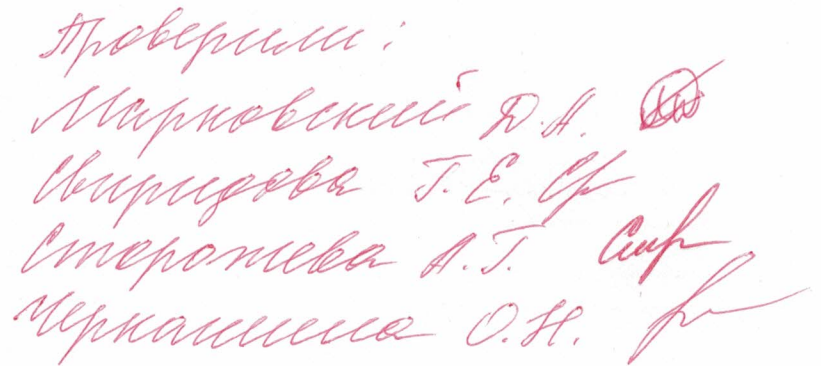 Проверили:
Марковский Д.А.
Свиридова Г.Е.
Сторожева А.Г.
Черкашина О.Н.